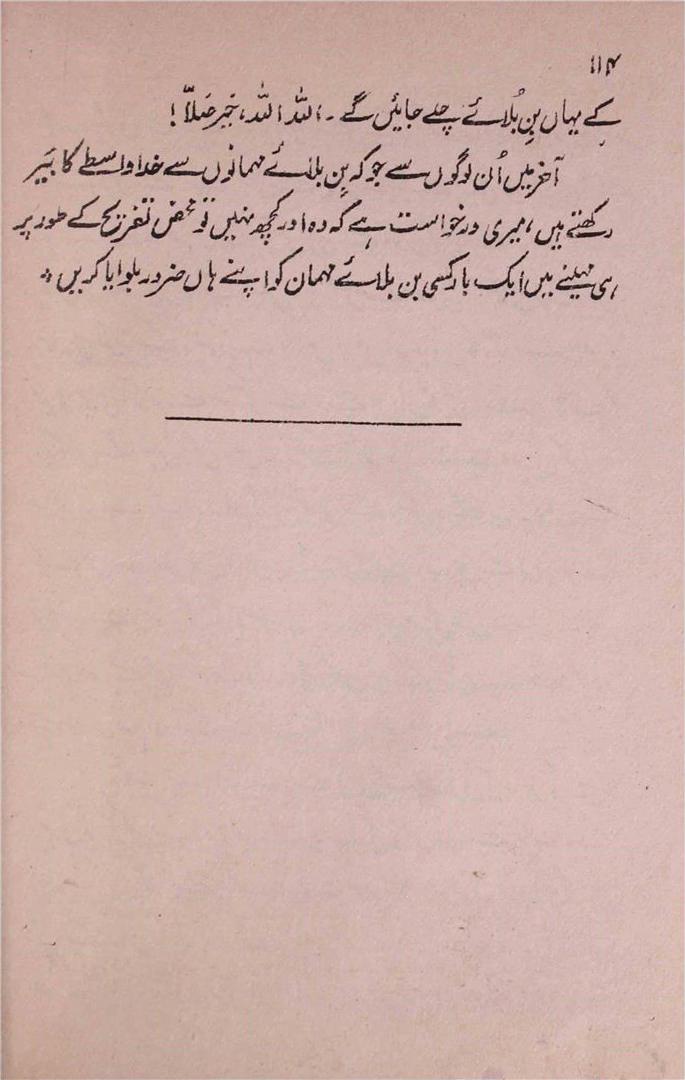 ۱۱۴
کے یہاں بِن بُلائے چلے جائیں گے ۔ اللہ اللہ، خیر صَلّا !
آخر میں اُن لوگوں سے جو کہ بِن بلائے مہمانوں سے خدا واسطے کا بَیر
رکھتے ہیں، میری درخواست ہے کہ وہ اور کچھ نہیں تو محض تفریح کے طور پر
ہی مہینے میں ایک بار کسی بن بلائے مہمان کو اپنے ہاں ضرور بلوایا کریں ۞